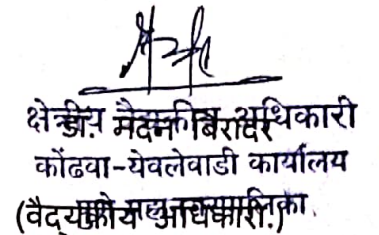 क्षेत्रीय वैद्यकीय अधिकारी
डॉ. मदन बिरादर
कोंढवा-येवलेवाडी कार्यालय
पुणे महानगरपालिका.
(वैद्यकीय अधिकारी.)